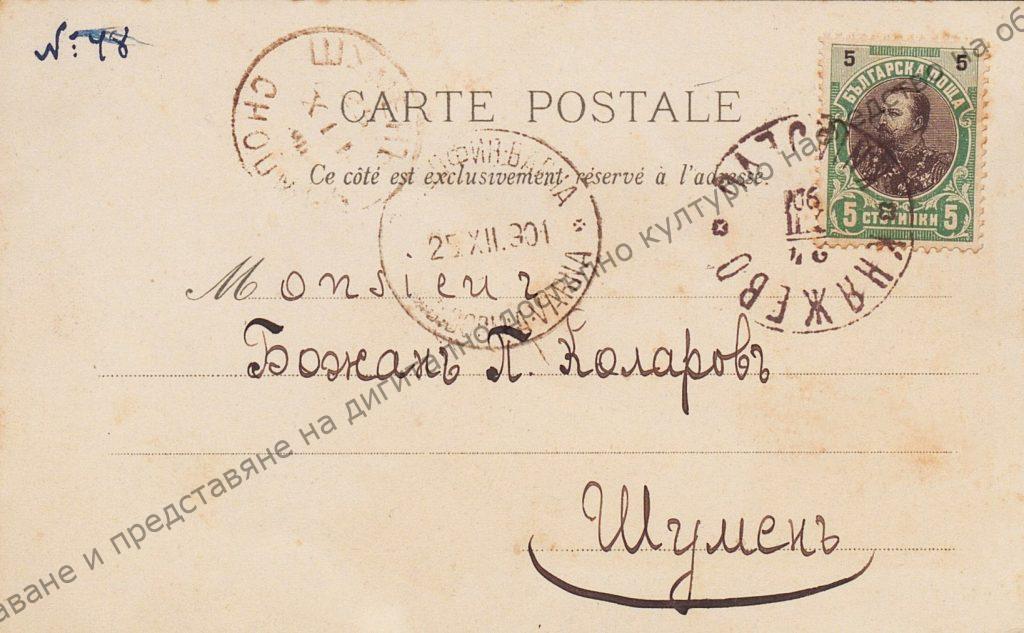 №: 48
CARTE POSTALE
Ce côté est exclusivement réservé à l'adresse.
5 5
БЪЛГАРСКА ПОЩА
5 СТОТИНКИ 5
КНЯЖЕВО
25.XII.901
VARNA
Monsieur
Божанъ П. Коларовъ
Шуменъ
и представяне на дигитално достъпно културно наследство на